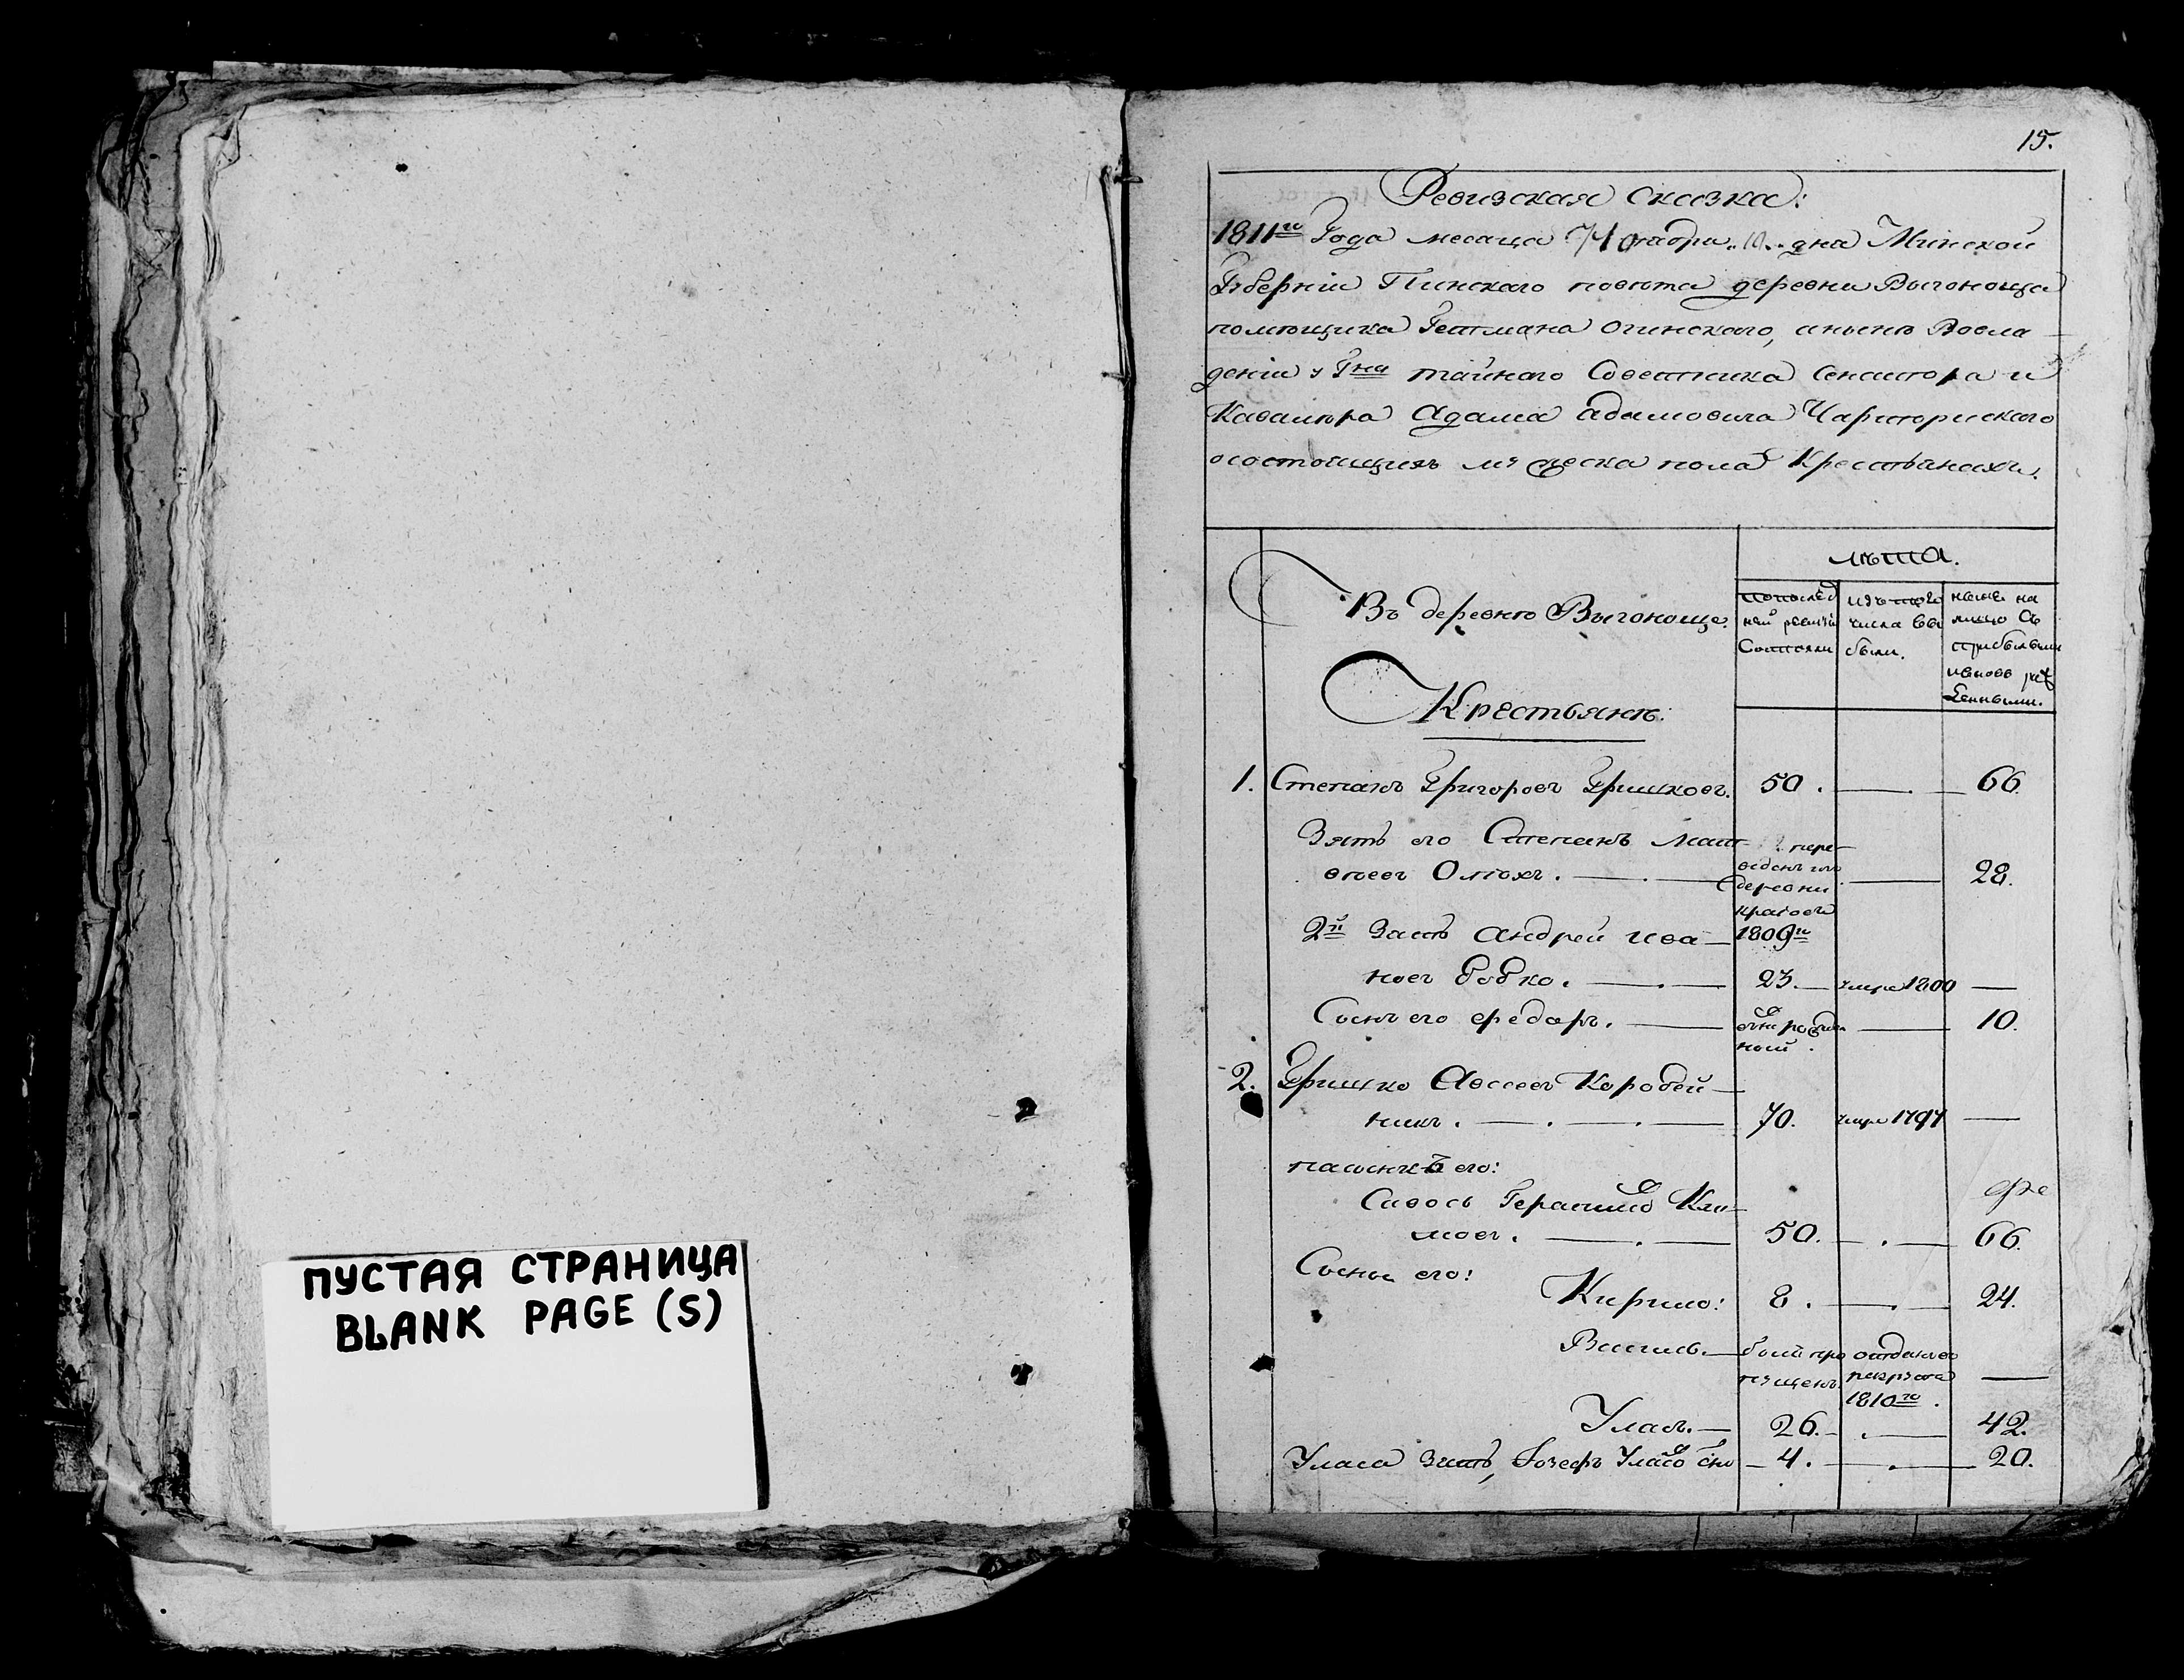 ПУСТАЯ СТРАНИЦА
BLANK PAGE (S)
15.
Ревизская сказка:
1811го Года месяца октабря 10. дна Минской
Губерніи Пинского повѣта деревни Выгоноща
помѣщика Гетмана Огинского, аньінѣ Восла
деніи у Гна тайного Советника Сенатора и
Кавалѣра Адама Адамовича Чарторискаго
осостоящихъ муческа пола Крестьянахъ.
лѣта.
Въ деревнѣ Выгоноще.
Крестьянъ:
попослед
ней ревизіи
Состояли
изъ того
числа вы
были.
ныне на
лицо Съ
прибылыми
ивновь рож
денными.
1. Степанъ Григоровъ Гришковъ. 50. — 66.
Зять его Степанъ Мат
веевъ Олюхъ. — 28.
пере
веденъ изъ
деревни
1809го
2й Зать Андрей Ива
новъ Бобко. 23. умре 1800 —
Сынъ его Федоръ. — 10.
рожден
ный.
2. Гришко Авсеевъ Коробей
никъ. 70. умре 1797 —
пасынкъ его:
Савось Герасимъ Кли
мовъ. 50. — 66.
Сыны его:
Кирило: 8. — 24.
Василь. — былъ про
пущенъ. отданъ в
рекруты
1810го. —
Уласъ. — 26. — 42.
Уласа Зять, Іозефъ Уласо 4. — 20.